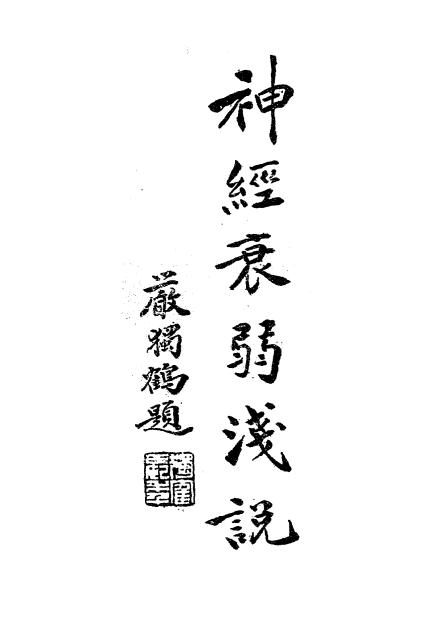 神經衰弱淺說
嚴獨鶴題